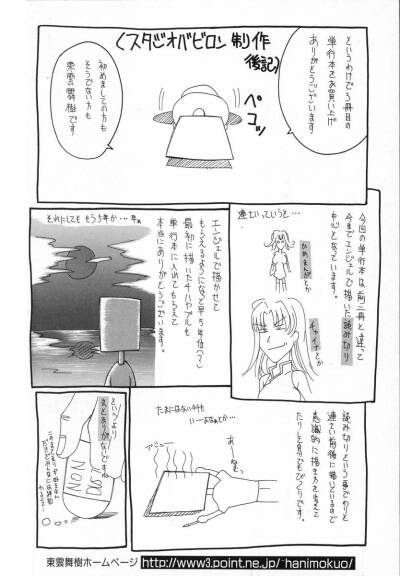 〈スタジオバビロン制作
後記〉
というわけで3冊目の
単行本をお買い上げ
ありがとうございます
ペ
コッ
初めましての方も
そうでない方も
東雲舞樹です
今回の単行本は前二冊と違って
今までエンジェルで描いた読み切り
中心となっています。
連さいっていうと…
ひめまんがとか
チャイナとか
エンジェルで描かせて
もらえるようになって早5年位(?)
最初に描いたチハヤブルも
単行本に入れてもらえて
本当にありがとう
ございます。
それにしてももう5年か…
読み切りという事でわりと
連さい前後に描いているので
意識的に描き方を変えて
たりして自分でもびっくりです。
たまにはない科も
いーよなぁとか…
あ
ねむっ
というより
まとまりがないですね
NON
DUST
東雲舞樹ホームページ http://www3.point.ne.jp/~hanimokuo/